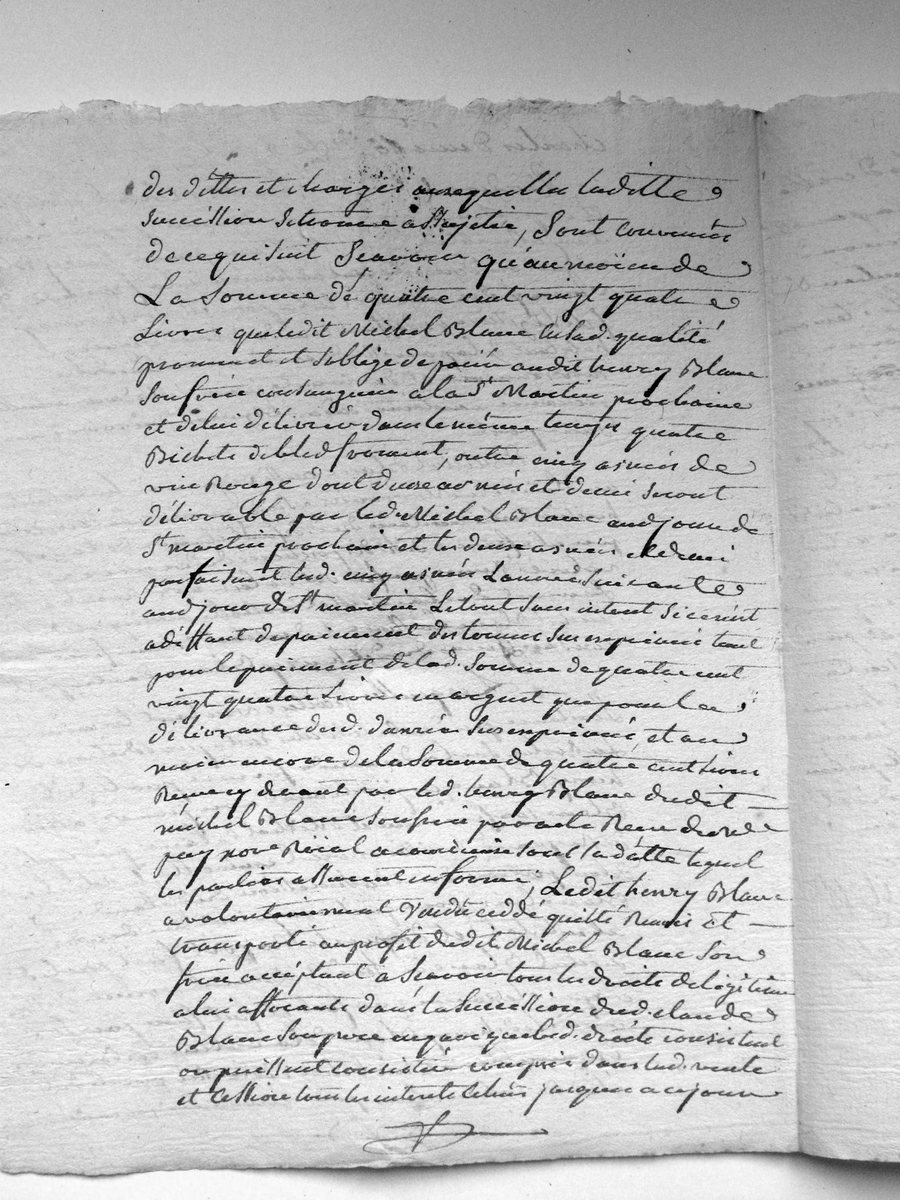 des dettes et charges auxquelles laditte
succéssion se trouve assujetie, sont convenus
de ce qui suit scavoir qu'au moien de
La somme de quatre cent vingt quatre
Livres que ledit Michel Blanc en lad. qualité
promet et soblige de paier audit henry Blanc
son frère consanguin a la St Martin prochaine
et de lui délivrer dans le même temps quatre
Bichets de bled froment, outre cinq asnées de
vin Rouge dont deux asnées et demi seront
délivrable par led. Michel Blanc aud. jour de
St martin prochain et les deux asnées et demi
parfaisant lesd. cinq asnées Lannée suivante
aud. jour de St martin Le tout sans interet si ce n'est
a déffaut de paiement des termes sus exprimés tant
pour le paiment de lad. somme de quatre cent
vingt quatre Livres en argent que pour la
délivrance desd. danrées sus exprimées, et au
moien encore de la somme de quatre cent livres
Reçue cy devant par led. henry Blanc dudit
michel Blanc son frère par acte Reçu
nore Roial sous sa datte lequel
les parties assurent en forme, Ledit henry Blanc
a volontairement vendu ceddé quitté Remis et
transporté au profit dudit Michel Blanc son
frère accéptant a scavoir tous les droits de légitime
a lui afferants dans la succéssion dud. claude
Blanc son père en quoi que lesd. droits consistent
ou puissent consister compris dans lad. vente
et cession tous les interets echus jusques a ce jour